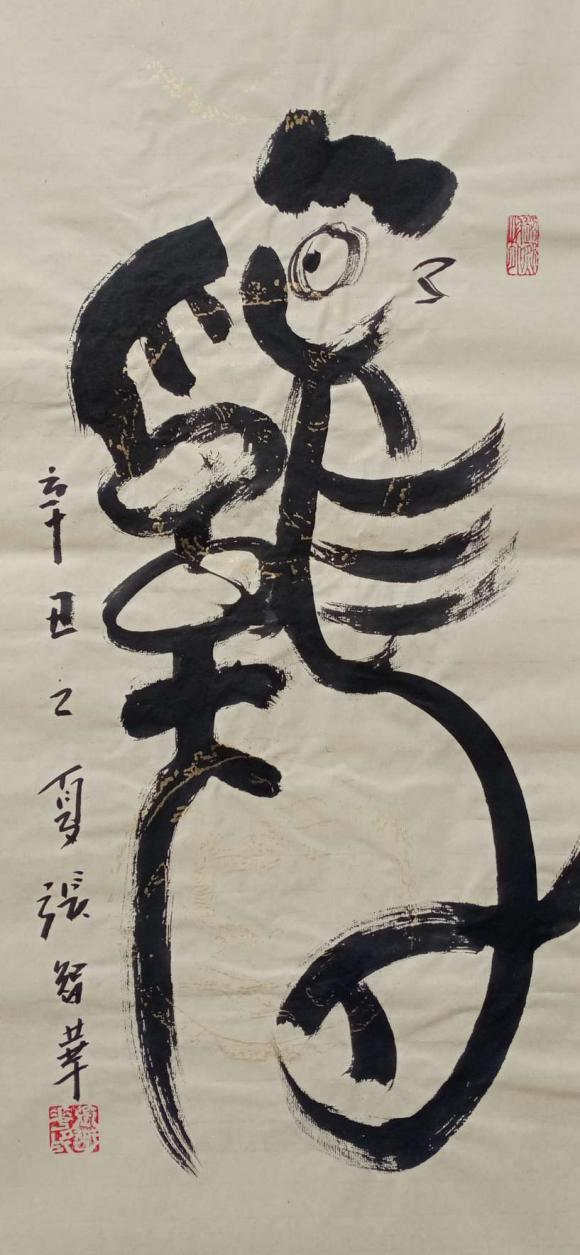 鷄
辛丑之夏張智華